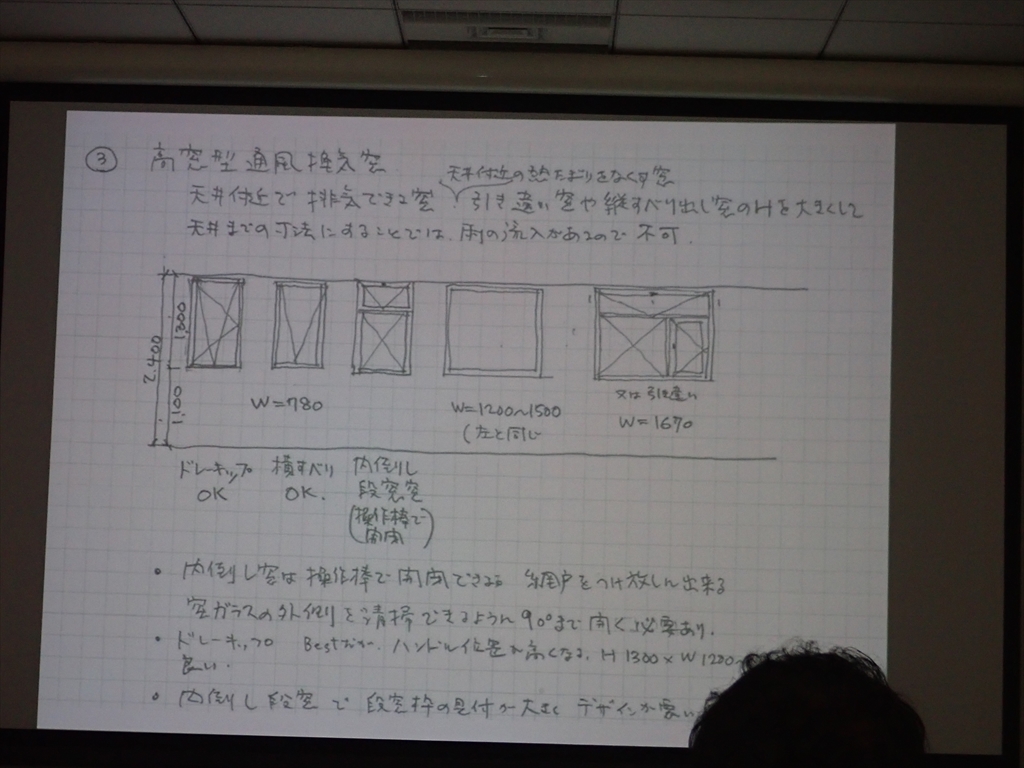 ③ 高窓型通風換気窓
天井付近の熱だまりをなくす窓
天井付近で排気できる窓 引き違い窓や縦すべり出し窓のHを大きくして
天井までの寸法にすることでは、雨の流入があるので不可.
2.400
1300
1100
W=780
W=1200~1500
(左と同じ
又は引き違い
W=1670
ドレーキップ
OK
横すべり
OK.
内倒し
段窓窓
(操作棒で
開閉)
• 内倒し窓は操作棒で開閉できる 網戸をつけ放しに出来る
窓ガラスの外側を清掃できるように90°まで開く必要あり.
• ドレーキップ Bestだが、ハンドル位置が高くなる、H1300×W1200
良い.
• 内倒し段窓で段窓枠の見付が大きくデザインが悪い